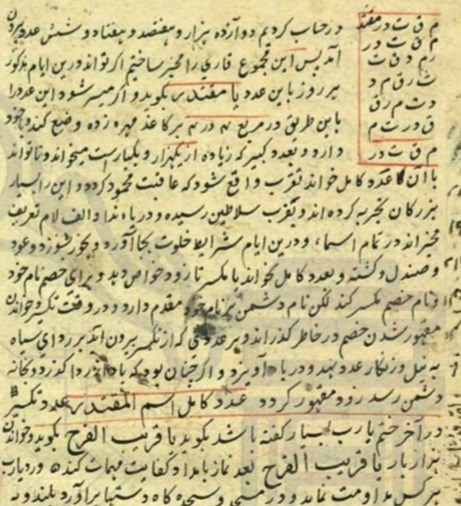 م ق ت در مقتد
م ق ت در
ر م د ق ت
ت ر ق م د
د ت م ر ق
ق د ر ت م
م ق ت د ر
در حساب کردیم دوازده هزار و هفتصد و هفتاد و شش عدد
آمد پس این مجموع قاری را مخیر ساختیم اگر تواند درین ایام مذکور
هر روز باین عدد یا مقتدر بکوید و اگر میسر شود این عدد را
باین طریق در مربع نه در نه بر کاغذ مهره زده وضع کند و با خود
دارد و بعدد کبیر که زیاده از یکهزار و یکبار است میخواند تا تواند
با آن عدد کامل خواند تقرب واقع شود که عاقبت محمود کردد و این را بسیار
بزرکان تجربه کرده اند و بقرب سلاطین رسیده و در یاء ندا و الف لام تعریف
مخیراند در تمام اسماء و درین ایام شرایط خلوت بجا آورد و بخور سوزد و عود
و صندل و کشته و بعدد کامل بخواند یا مکسر تا زود خواص دهد و برای خصم نام خود
و نام خصم مکسر کند لکن نام دشمن بر نام خود مقدم دارد و در وقت تکسیر و خواندن
مقهور شدن خصم در خاطر کذراند و بر عددی که از تکسیر بیرون آمد بر روی سیاه
به نیل و زنکار عدد بنهد و در باد آویزد و اگر چنان بود که باد
دشمن رسد زود مقهور کردد عدد کامل اسم المقتدر بعدد تکسیر
در آخر ختم یا رب بسیار کفته باشد بکوید یا قریب الفرج بکوید و خواندن
هزار بار یا قریب الفرج بعد نماز بامداد کفایت مهمات کند
هر کس مداومت نماید و در سجده کاه دستها بر آورد بلند و نه